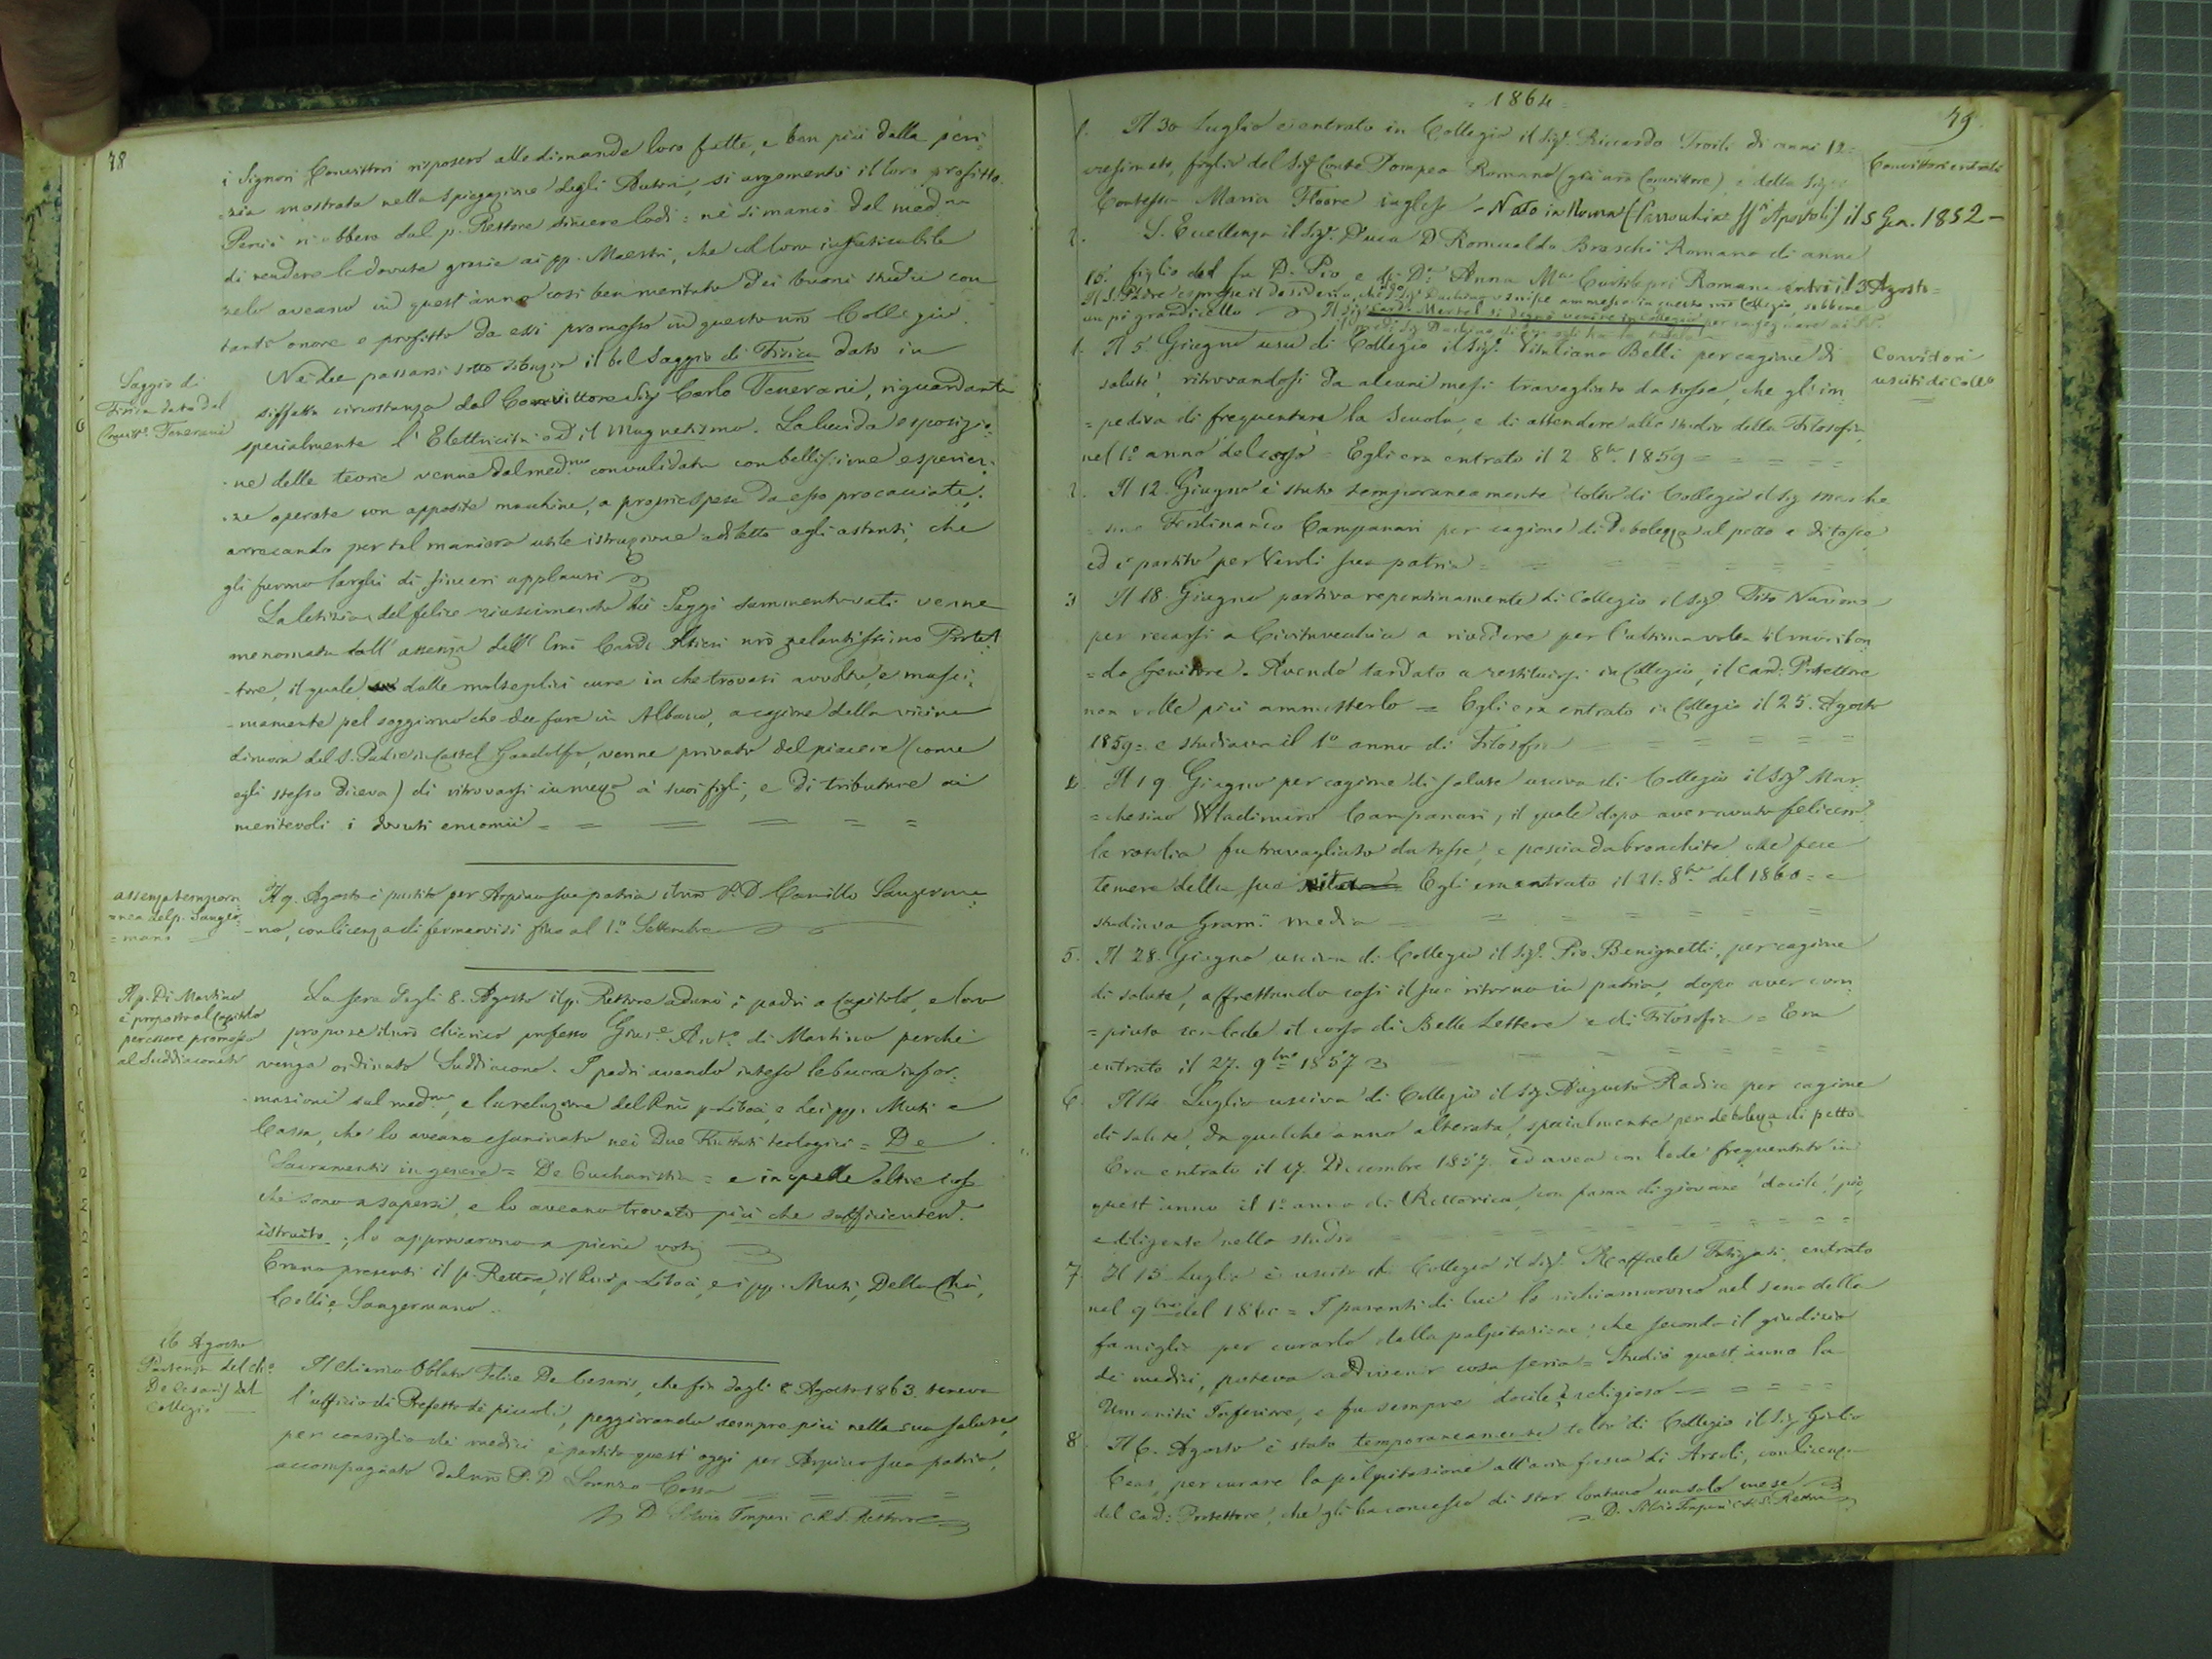 78
i Signori Convittori risposero alle dimande loro fatte, e ben più dalla peri-
=zia mostrata nella spiegazione degli Autori, si argomentò il loro profitto.
Perciò si ebbero dal p. Rettore sincere lodi: nè si mancò dal med.mo
di rendere le dovute grazie ai pp. Maestri, che col loro infaticabile
zelo aveano in quest'anno così ben meritato dei buoni studii con
tanto onore e profitto da essi promosso in questo nrõ Collegio.
Saggio di
Fisica dato dal
Convitt.e Tenerani
Nè dee passarsi sotto silenzio il bel Saggio di Fisica dato in
siffatta circostanza dal Convittore Sig. Carlo Tenerani, riguardante
specialmente l'Elettricità ed il Magnetismo. La lucida esposizio-
=ne delle teorie venne dal med.mo convalidata con bellissime esperien-
=ze operate con apposite macchine, a proprie spese da esso procacciate,
arrecando per tal maniera utile istruzione e diletto agli astanti, che
gli furono larghi di sinceri applausi
La letizia del felice riuscimento dei Saggi summentovati venne
menomata dall'assenza dell'Emõ Card. Altieri nrõ zelantissimo Protet-
-tore, il quale dalle molteplici cure in che trovasi avvolto, e massi-
-mamente pel soggiorno che dee fare in Albano, a cagione della vicina
dimora del S. Padre in Castel Gandolfo, venne privato del piacere (come
egli stesso diceva) di ritrovarsi in mezzo a' suoi figli, e di tributare ai
meritevoli i dovuti encomii = = = = = =
assenza tempora
=nea del p. Sanger-
=mano
Il 9. Agosto è partito per Arpino sua patria il nrõ P. D. Camillo Sangerma-
-no, con licenza di fermarvisi fino al 1.o Settembre
Il p. Di Martino
è proposto al Capitolo
per essere promosso
al Suddiaconato
La sera degli 8. Agosto il p. Rettore adunò i padri a Capitolo, e loro
propose il nrõ chierico professo Gius.e Ant.o di Martino perchè
venga ordinato Suddiacono. I padri avendo inteso le buone infor-
-mazioni sul med.mo, e la relazione del Rmõ p. Libois e dei pp. Muti e
Cossa, che lo aveano esaminato nei Due Trattati teologici = De
Sacramentis in genere = De Eucharistia = e in quelle altre cose
che sono a sapersi, e lo aveano trovato più che sufficientem.
istruito; lo approvarono a pieni voti
Erano presenti il p. Rettore, il Rmõ p. Libois, e i pp. Muti, Della Chà,
Celli e Sangermano.
16 Agosto
Partenza del ch.o
De Cesaris dal
Collegio
Il Chierico Oblato Felice De Cesaris, che fin dagli 8 Agosto 1863. teneva
l'officio di Prefetto de' piccoli, peggiorando sempre più nella sua salute,
per consiglio de' medici è partito quest'oggi per Arpino sua patria,
accompagnato dal nrõ P. D. Lorenzo Cossa = = = =
D. Silvio Imperi C.R.S. Rettore
= 1864 =
79.
Convittori entrati
1. Il 30 Luglio è entrato in Collegio il Sig.r Riccardo Troili di anni 12.
cresimato, figlio del Sig. Conte Pompeo Romano (già nrõ Convittore) e della Sig.ra
Contessa Maria Moore inglese - Nato in Roma (Parrochia SS.ti Apostoli) il 5 Gen. 1852 -
2. S. Eccellenza il Sig.r Duca D. Romualdo Braschi Romano di anni
15. figlio del fu D. Pio e di D.a Anna M.a Curtilepri Romana entrò il 3 Agosto =
Il S. Padre espresse il desiderio, che il Sig. Duchino venisse ammesso in questo nrõ Collegio, sebbene
un pò grandicello Il Sig. Card. Mertel si degnò venire in Collegio per
Convittori
usciti di Coll.o
1. Il 5. Giugno uscì di Collegio il Sig.r Vitaliano Belli per cagione di
salute, ritrovandosi da alcuni mesi travagliato da tosse, che gl'im-
=pediva di frequentare la Scuola, e di attendere allo studio della Filosofia
nel 1.o anno del corso = Egli era entrato il 2. 8bre 1859 = = = =
2. Il 12. Giugno è stato temporaneamente tolto di Collegio il Sig. Marche-
sino Ferdinando Campanari per cagione di debolezza al petto e di tosse
ed è partito per Veroli sua patria = = = = =
3 Il 18. Giugno partiva repentinamente di Collegio il Sig.r Tito
per recarsi a Civitavecchia a rivedere per l'ultima volta il moribon-
=do Genitore. Avendo tardato a restituirsi in Collegio, il Card. Protettore
non volle più ammetterlo = Egli era entrato in Collegio il 25. Agosto
1859 = e studiava il 1.o anno di Filosofia = = = = =
4. Il 19. Giugno per cagione di salute usciva di Collegio il Sig.r Mar-
=chesino Wladimiro Campanari, il quale dopo aver avuto felicem.
la rosolia fu travagliato da tosse, e poscia da bronchite che fece
temere della sua vita = Egli era entrato il 21. 8bre del 1860 = e
studiava Gram. media = = = = = =
5. Il 28. Giugno usciva di Collegio il Sig.r Pio Benignetti, per cagione
di salute, affrettando così il suo ritorno in patria, dopo aver com-
=piuto con lode il corso di Belle Lettere e di Filosofia = Era
entrato il 27. 9bre 1857 = = = = =
6. Il 14 Luglio usciva di Collegio il Sig. Augusto Radice per cagione
di salute, da qualche anno alterata, specialmente per debolezza di petto
Era entrato il 17. Dicembre 1857. ed avea con lode frequentato in
quest'anno il 1.o anno di Rettorica, con fama di giovane docile, pio,
e diligente nello studio = = = = = = =
7. Il 15 Luglio è uscito di Collegio il Sig.r Raffaele Fatigati entrato
nel 9bre del 1860 = I parenti di lui lo richiamarono nel seno della
famiglia per curarlo dalla palpitazione, che secondo il giudizio
de' medici, poteva addivenir cosa seria = Studiò quest'anno la
Umanità Inferiore, e fu sempre docile e religioso = = = =
8. Il 6. Agosto è stato temporaneamente tolto di Collegio il Sig. Giulio
Ceas, per curare la palpitazione all'aria fresca di Arsoli, con licenza
del Card. Protettore, che gli ha concesso di star lontano un solo mese
= D. Silvio Imperi C.R.S. Rettore